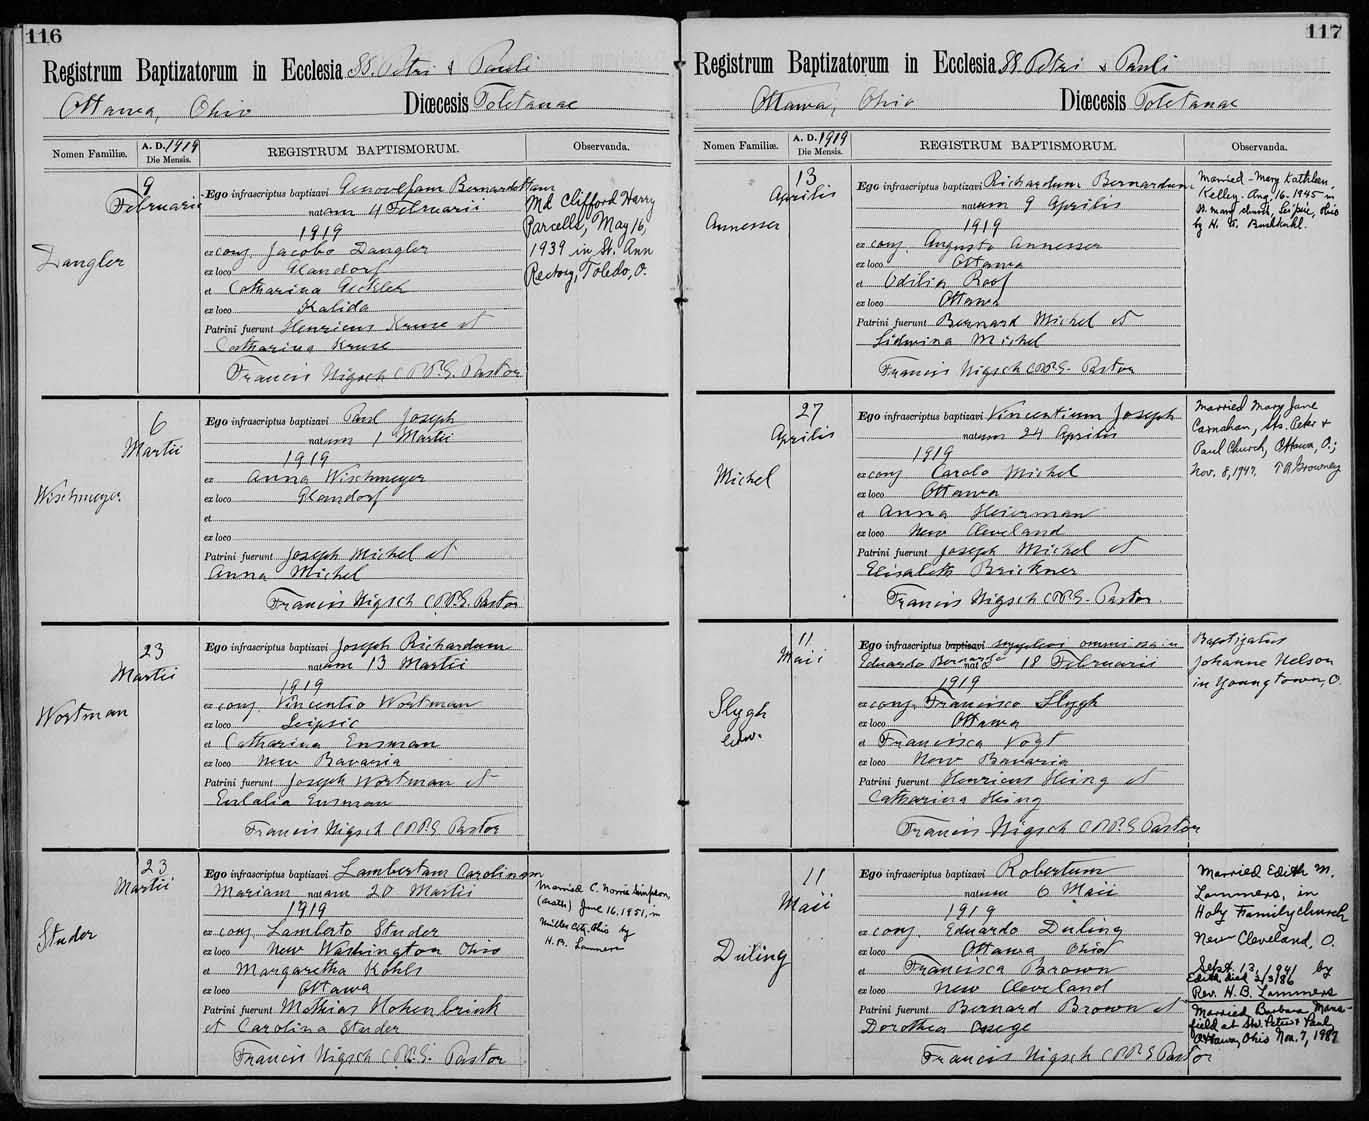 116
Registrum Baptizatorum in Ecclesia SS. Petri & Pauli
Ottawa, Ohio Diœcesis Toletanae
Nomen Familiæ.
A. D. 1919
Die Mensis.
REGISTRUM BAPTISMORUM.
Observanda.
9
Februarii
Dangler
Ego infrascriptus baptizavi Genovefam Bernardettam
natam 4 Februarii
1919
ex conj. Jacobo Dangler
ex loco Glandorf
et Catharina
ex loco Kalida
Patrini fuerunt Henricus Kruse et
Catharina Kruse
Francis Nigsch C.PP.S. Pastor
Md Clifford Harry
Parcells, May 16,
1939 in St. Ann
Rectory, Toledo, O.
6
Martii
Wischmeyer
Ego infrascriptus baptizavi Paul Joseph
natum 1 Martii
1919
ex Anna Wischmeyer
ex loco Glandorf
et
ex loco
Patrini fuerunt Joseph Michel et
Anna Michel
Francis Nigsch C.PP.S. Pastor
23
Martii
Wortman
Ego infrascriptus baptizavi Joseph Richardum
natum 13 Martii
1919
ex conj. Vincentio Wortman
ex loco Leipsic
et Catharina Ensman
ex loco New Bavaria
Patrini fuerunt Joseph Wortman et
Eulalia Ensman
Francis Nigsch C.PP.S Pastor
23
Martii
Studer
Ego infrascriptus baptizavi Lambertam Carolinam
Mariam natam 20 Martii
1919
ex conj. Lamberto Studer
ex loco New Washington Ohio
et Margaretha Kohls
ex loco Ottawa
Patrini fuerunt Mathias Hohenbrink
et Carolina Studer
Francis Nigsch C.PP.S. Pastor
Married C. Norris Simpson,
(cath) June 16, 1951, in
Miller City, Ohio by
H. B. Lammers
117
Registrum Baptizatorum in Ecclesia SS. Petri & Pauli
Ottawa, Ohio Diœcesis Toletanae
Nomen Familiæ.
A. D. 1919
Die Mensis.
REGISTRUM BAPTISMORUM.
Observanda.
13
Aprilis
Annesser
Ego infrascriptus baptizavi Richardum Bernardum
natum 9 Aprilis
1919
ex conj. Augusto Annesser
ex loco Ottawa
et Odilia Roof
ex loco Ottawa
Patrini fuerunt Bernard Michel et
Lidwina Michel
Francis Nigsch C.PP.S. Pastor
Married - Mary Kathleen
Kelley - Aug. 16. 1945 in
St. Mary church, Leipsic, Ohio
by H. G.
27
Aprilis
Michel
Ego infrascriptus baptizavi Vincentium Joseph
natum 24 Aprilis
1919
ex conj Carolo Michel
ex loco Ottawa
et Anna Heierman
ex loco New Cleveland
Patrini fuerunt Joseph Michel et
Elisabeth Brickner
Francis Nigsch C.PP.S. Pastor.
Married Mary Jane
Carnahan, Sts. Peter +
Paul Church, Ottawa, O.;
Nov. 8, 1947.
11
Maii
Slygh
Edw.
Ego infrascriptus baptizavi supplevi omnia in
Eduardo Bernardo nato 18 Februarii
1919
ex conj. Francisco Slygh
ex loco Ottawa
et Francisca Vogt
ex loco New Bavaria
Patrini fuerunt Henricus Heing et
Catharina Heing
Francis Nigsch C.PP.S Pastor
Baptizatus
Johanne Nelson
in Youngtown, O.
11
Maii
Duling
Ego infrascriptus baptizavi Robertum
natum 6 Maii
1919
ex conj. Eduardo Duling
ex loco Ottawa Ohio
et Francisca Brown
ex loco New Cleveland
Patrini fuerunt Bernard Brown et
Dorothea
Francis Nigsch C.PP.S Pastor
Married Edith M.
Lammers, in
Holy Family church
New Cleveland, O.
Sept. 13, 1941 by
Edith died 2/3/86
Rev. H. B. Lammers
Married Barbara Mans-
field at Sts. Peter + Paul
Ottawa, Ohio Nov. 7, 1987